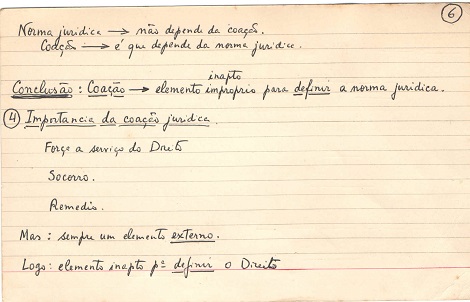 6
Norma juridica → não depende da coação.
Coação → é que depende da norma juridica.
inapto
Conclusão : Coação → elemento improprio para definir a norma juridica.
4 Importancia da coação juridica.
Força a serviço do Direito
Socorro.
Remedio.
Mas : sempre um elemento externo.
Logo : elemento inapto pª definir o Direito